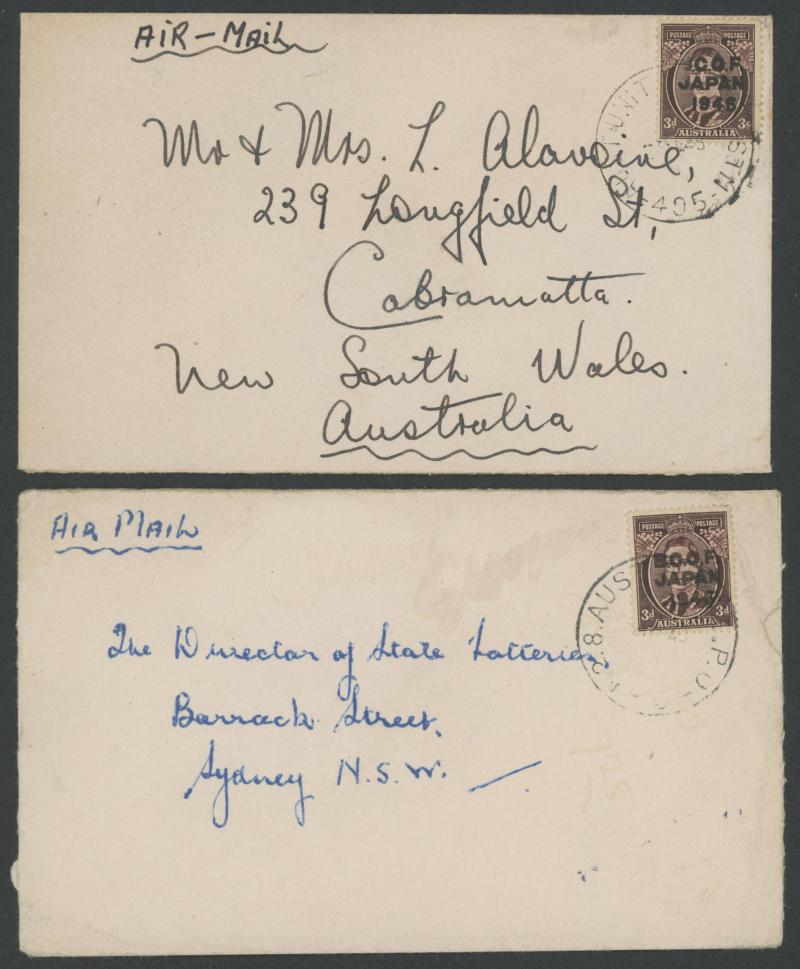 AIR-MAIL
POSTAGE POSTAGE
.C.O.F
JAPAN
1946
3d
AUSTRALIA
UNIT
405
Mr & Mrs. L. Alavoine,
239 Longfield St,
Cabramatta.
New South Wales.
Australia
AIR MAIL
POSTAGE POSTAGE
B.C.O.F.
JAPAN
1946
3d 3d
AUSTRALIA
AUST
The Director of State Lotteries
Barrack Street,
Sydney N.S.W.